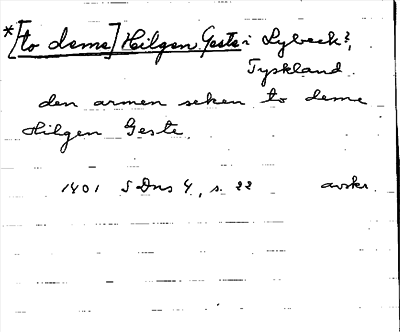 *[to deme] Hilgen Geste i Lybeck?,
Tyskland.
den armen seken to deme
Hilgen Geste.
1401 SDns 4, s. 22 avskr.